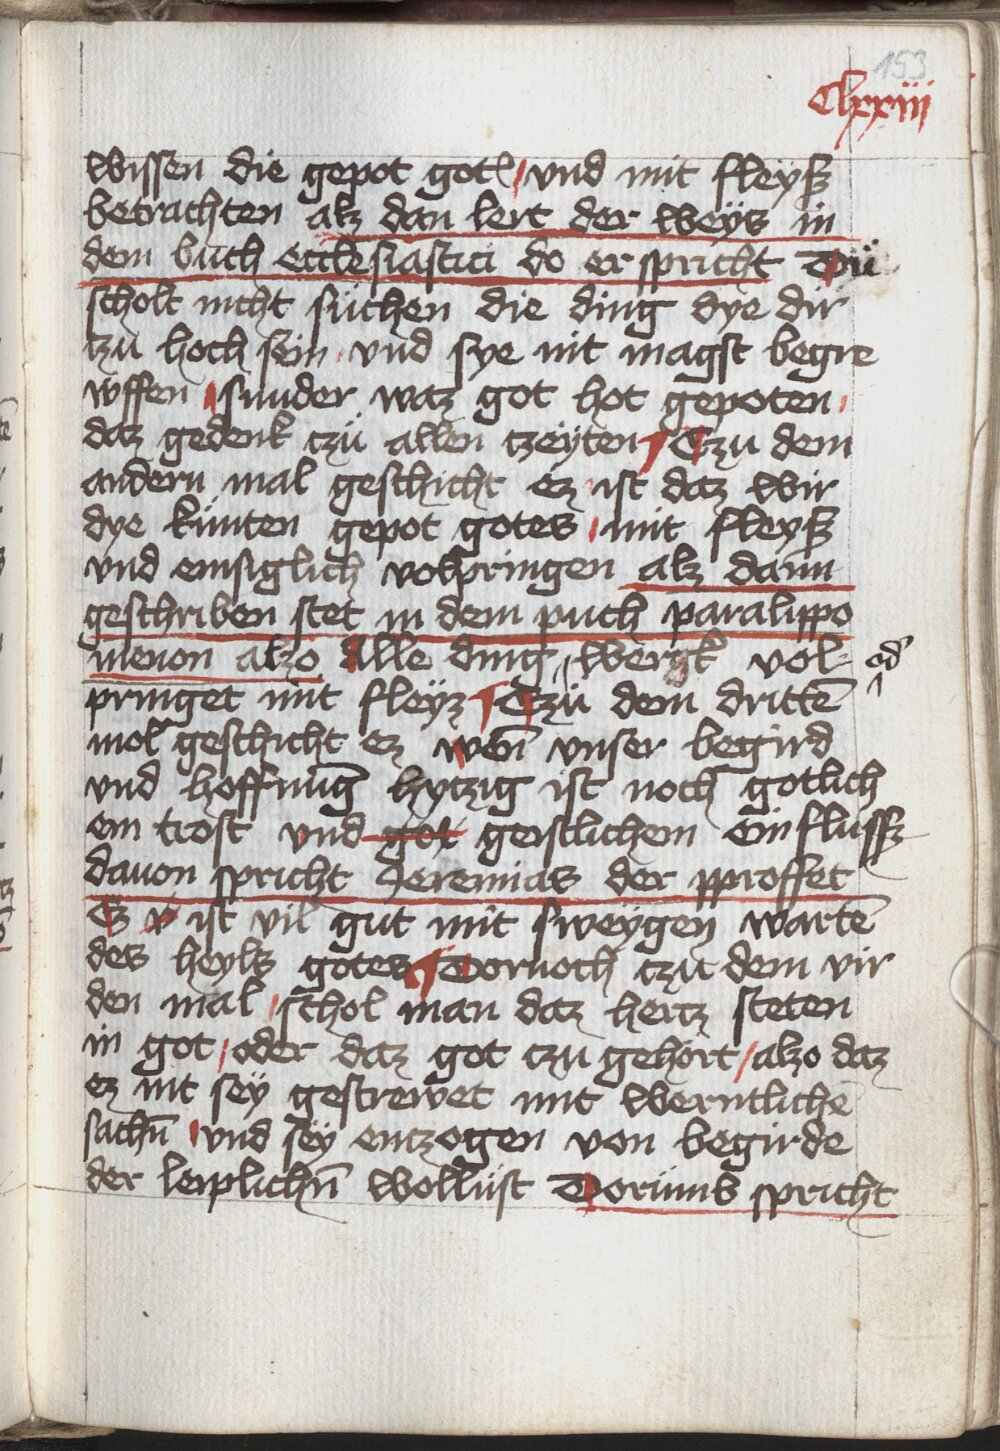 153
Clxxiii
wissen die gepot gotes / vnd mit fleyß
betrachten alz dan lert der weÿs in
dem buch ecclesiastici do er spricht Dü
scholt nicht süchen die ding dye dir
tzu hoch sein vnd sye nit magst begre
wffen / sunder waz got hot gepoten /
daz gedenk tzü allen tzeÿten ¶ Tzu dem
andern mal geschicht ez ist daz wir
dye kunten gepot gotes / mit fleyß
vnd emsiglich volpringen alz dann
geschriben stet in dem puch paralippo
menon alzo Alle ding wergk vol
od'
pringet mit fleÿz ¶ Tzü dem dritte̅
mol geschicht ez wen̅ vnser begird
vnd hoffnung hytzig ist noch gotlich
em trost vnd got geistlichem einflussz
dauon spricht Jeremias der pproffet
Es ist vil gut mit sweÿgen warte̅
des heyls gotes ¶ Dornoch tzu dem vir
den mal / schol man daz hertz steten
in got / oder daz got tzu gehört / alzo daz
ez nit seÿ gestrewet mit werntliche̅
sachn̅ / vnd seÿ entzogen von begirde
der leiplichn̅ wollüst Dorümb spricht